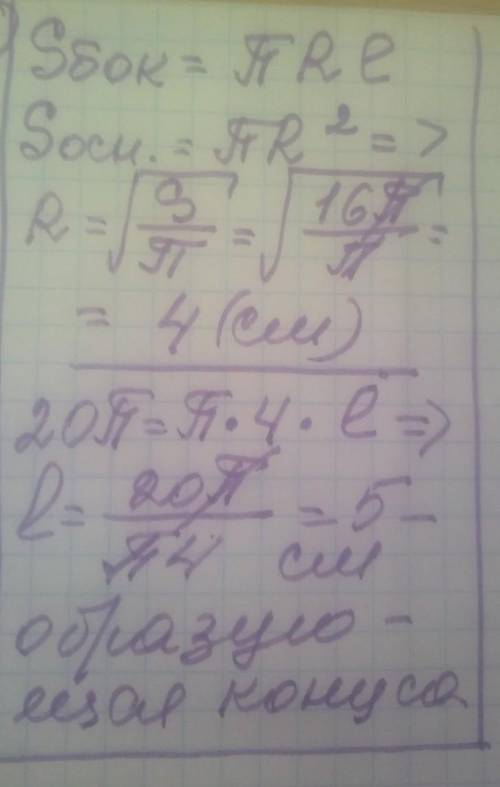 Sбок = πRl
Sосн. = πR² =>
R = √(S/π) = √(16π/π) =
= 4 (см)
20π = π·4·l =>
l = 20π/π4 = 5 –
см
образую-
щая конуса